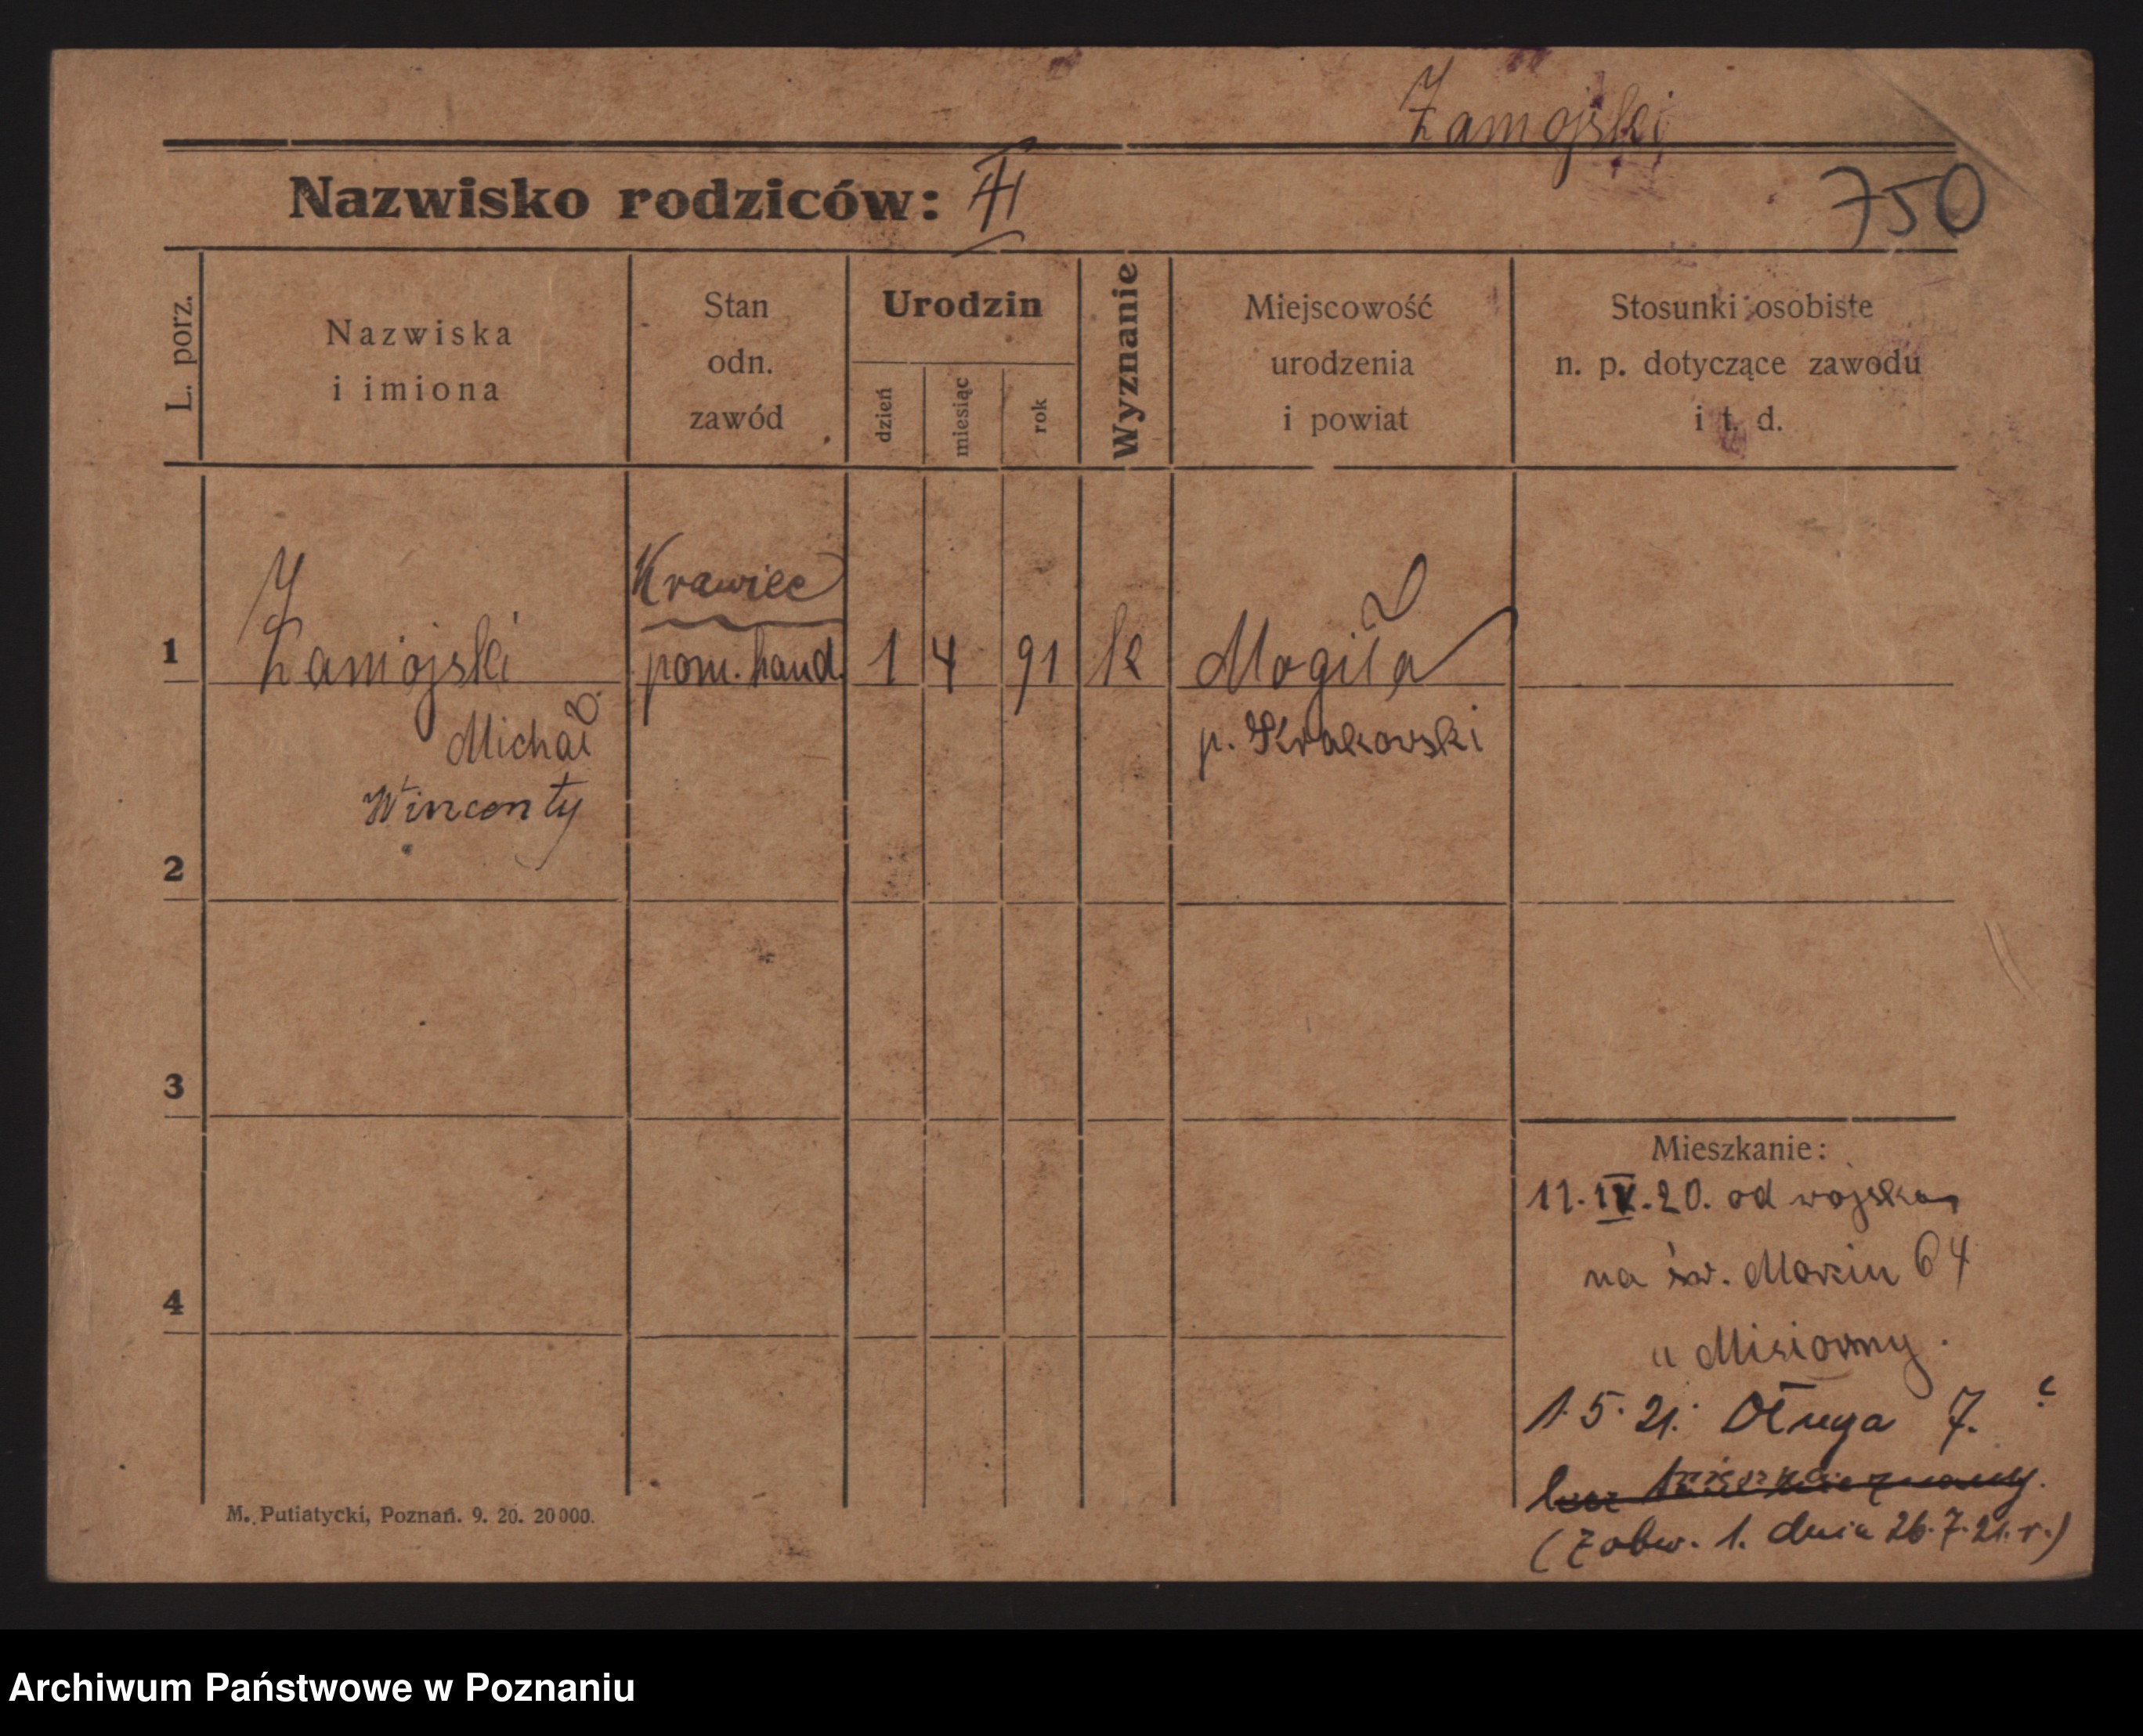 Zamojski
Nazwisko rodziców: III
750
L. porz.
Nazwiska
i imiona
Stan
odn.
zawód
Urodzin
dzień
miesiąc
rok
Wyznanie
Miejscowość
urodzenia
i powiat
Stosunki osobiste
n. p. dotyczące zawodu
i t. d.
Krawiec
1 Zamojski pom. hand. 1 4 91 k Mogiła
Michał p. Krakowski
Wincenty
2
3
4
Mieszkanie:
11.IV.20. od wojska
na św. Marcin 64
u Misiorny.
1.5.21. Długa 7.
(Zobw. 1. dnia 26.7.21.r.)
M. Putiatycki, Poznań. 9. 20. 20000.
Archiwum Państwowe w Poznaniu